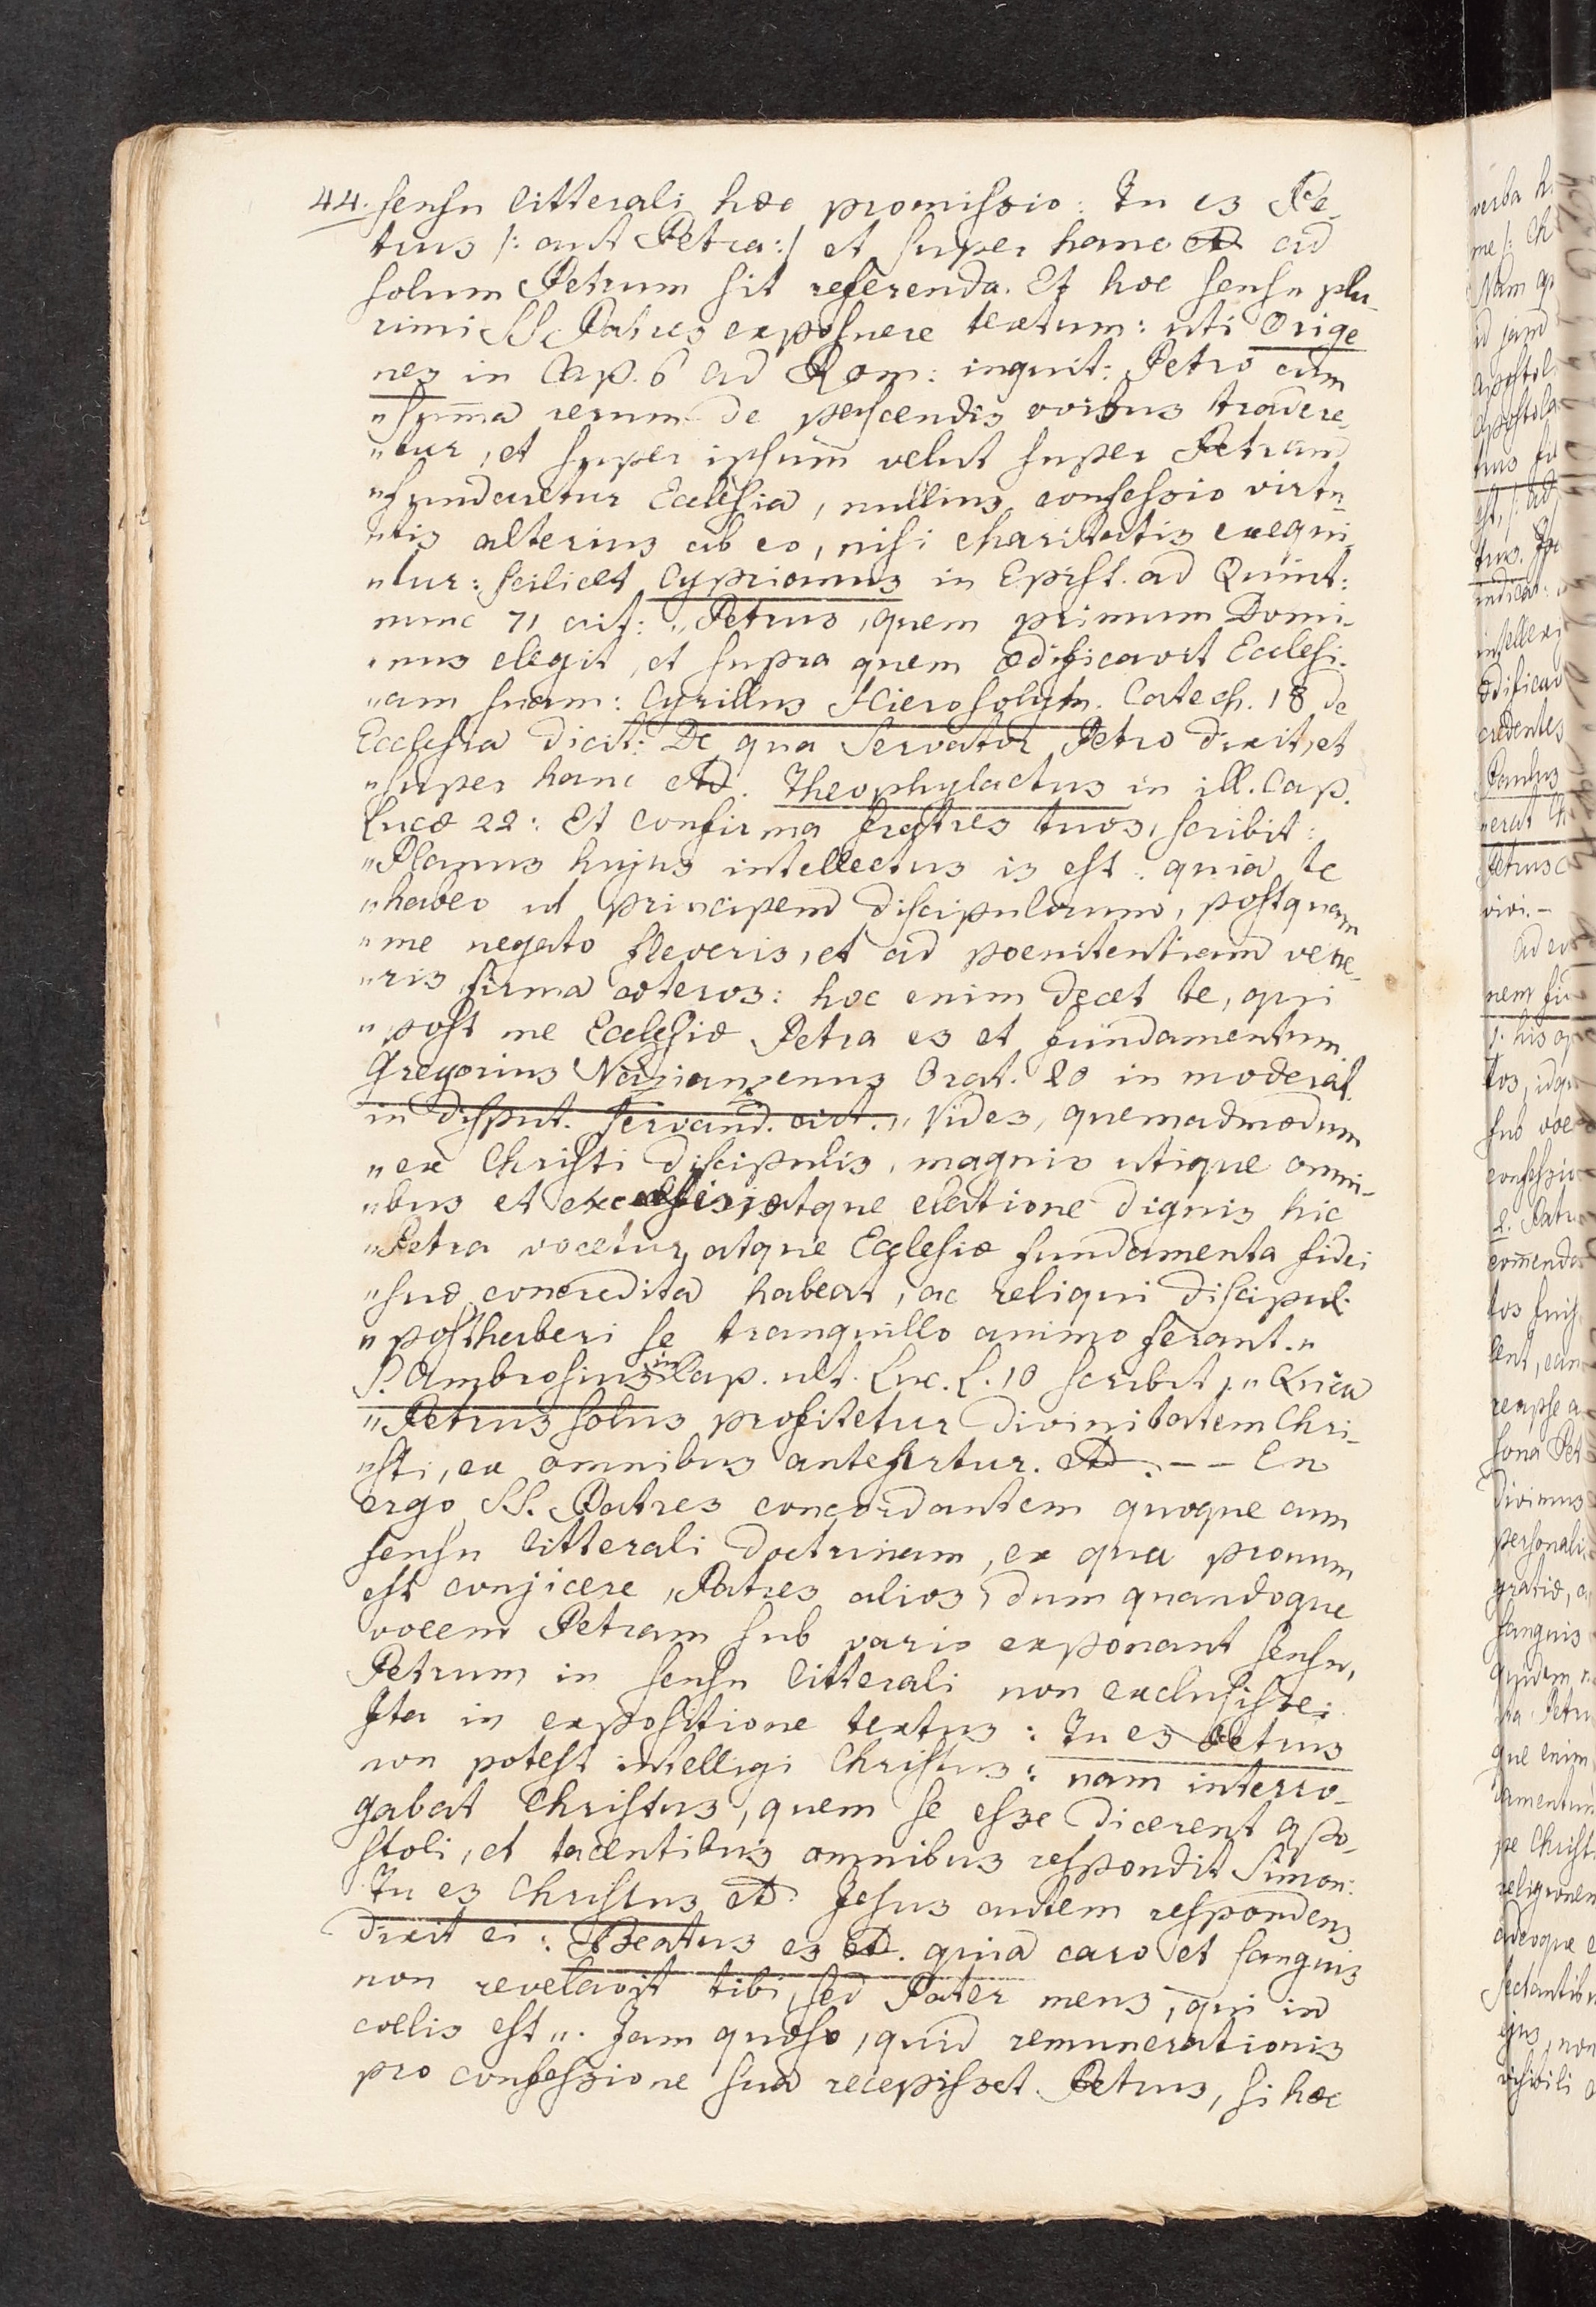 44. sensu litterali hæc promissio: Tu es Pe-
trus /: aut Petra:/ et super hanc etc ad
solum Petrum sit referenda. Et hoc sensu plu-
rimi SS. Patres exposuere textum: uti Orige
nes in Cap. 6 ad Rom: inquit: Petro cum
"summa rerum de pascendis ovibus tradere-
"tur, et super ipsum velut super Petram
"fundaretur Ecclesia, nullius confessio virtu-
"tis alterius ab eo, nisi charitatis exequi-
"tur: scilicet Cyprianus in Epist. ad Quint:
nunc 71 ait: "Petrus, quem primum Domi-
"nus elegit, et supra quem ædificavit Ecclesi-
"am suam: Cyrillus Hierosolym. Catech. 18 de
Ecclesia dicit: De qua Servator Petro dixit, et
"super hanc etc. Theophylactus in ill. Cap.
Lucæ 22: Et confirma fratres tuos, scribit:
"Planus hujus intellectus is est: quia te
"habeo ut principem discipulorum, postquam
"me negato fleveris, et ad poenitentiam vene-
"ris firma cæteros: hoc enim decet te, qui
"post me Ecclesiæ Petra es et fundamentum.
Gregorius Nazianzenus Orat. 20 in moderat.
in disput. servand. ait. "Vides, quemadmodum
"ex Christi discipulis, magnis utique omni-
"bus et excelsis, atque electione dignis hic
"Petra vocetur, atque Ecclesiæ fundamenta fidei
"suæ concredita habeat, ac reliqui discipuli
"posthaberi se tranquillo animo ferant."
S. Ambrosius in Cap. ult. Luc. L. 10 scribit: "Quia
"Petrus solus profitetur divinitatem Chri-
"sti, ex omnibus antefertur. etc. -- En
ergo SS. Patres concordantem quoque cum
sensu litterali doctrinam, ex qua pronum
est conjicere, Patres alios, dum quandoque
vocem Petram sub vario exponant sensu,
Petrum in sensu litterali non exclusisse:
Ita in expositione textus: Tu es Petrus
non potest intelligi Christus: nam interro-
gabat Christus, quem se esse dicerent Apo-
stoli, et tacentibus omnibus respondit Simon:
Tu es Christus etc. Jesus autem respondens
dixit ei: Beatus es etc. quia caro et sanguis
non revelavit tibi, sed Pater meus, qui in
coelis est". Jam quæso, quid remunerationis
pro confessione sua recepisset Petrus, si hæc